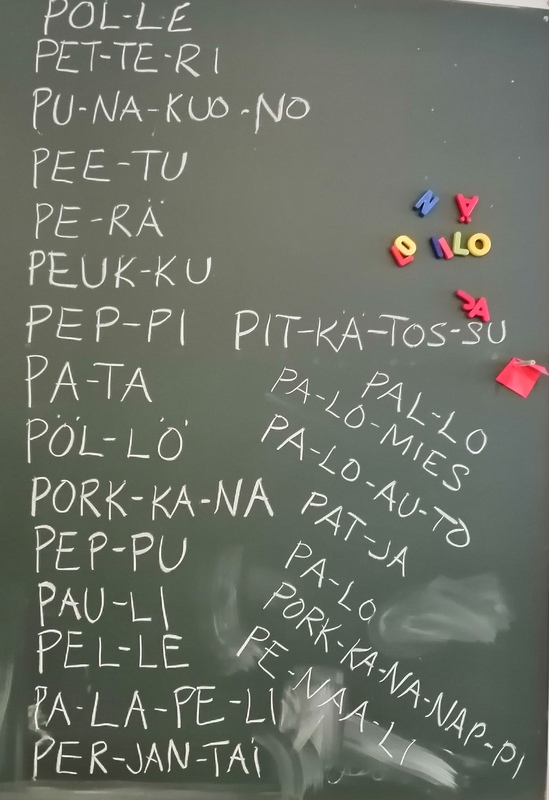 POL-LE
PET-TE-RI
PU-NA-KUO-NO
PEE-TU
PE-RÄ
PEUK-KU
PEP-PI
PA-TA
PÖL-LÖ
PORK-KA-NA
PEP-PU
PAU-LI
PEL-LE
PA-LA-PE-LI
PER-JAN-TAI
PIT-KÄ-TOS-SU
PAL-LO
PA-LO-MIES
PA-LO-AU-TO
PAT-JA
PA-LO
PORK-KA-NA-NAP-PI
PE-NAA-LI